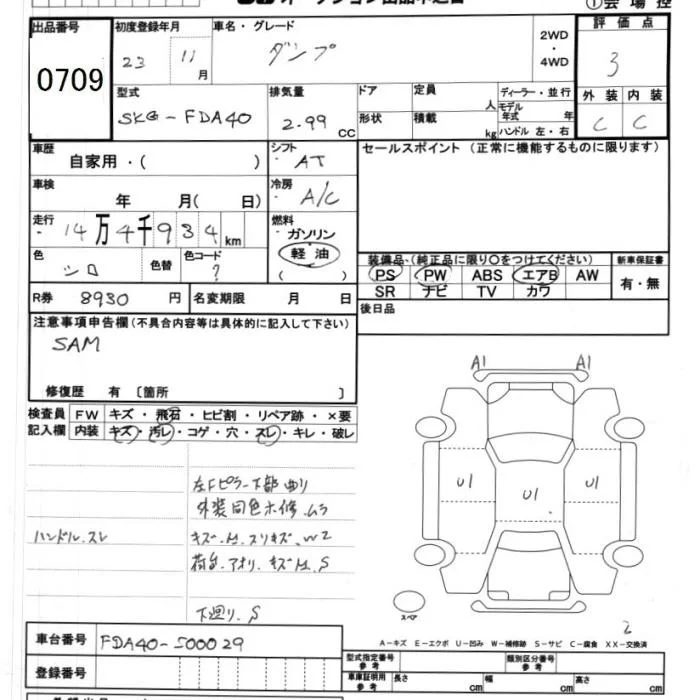 ①会場控
出品番号
0709
初度登録年月
23 11月
車名・グレード
ダンプ
2WD
・
4WD
評価点
3
型式
SKG-FDA40
排気量
2.99 CC
ドア
定員
人
ディーラー・並行
モデル
年式 年
形状
積載
kg
ハンドル 左・右
外装 内装
C C
車歴
自家用・( )
シフト
AT
セールスポイント (正常に機能するものに限ります)
車検
年 月( 日)
冷房
A/C
走行
14万4千934km
燃料
・ガソリン
・軽油
( )
色
シロ
色替
色コード
?
装備品・(純正品に限り○をつけてください)
新車保証書
PS PW ABS エアB AW
有・無
SR ナビ TV カワ
R券 8930 円
名変期限 月 日
後日品
注意事項申告欄(不具合内容等は具体的に記入して下さい)
SAM
修復歴 有 〔箇所 〕
検査員
記入欄
FW キズ・飛石・ヒビ割・リペア跡・×要
内装 キズ・汚レ・コゲ・穴・スレ・キレ・破レ
A1 A1
U1 U1 U1
左Fピラー下部曲り
外装同色ホ修.ムラ
ハンドル.スレ
キズ.M.スリキズ.W2
荷台.アオリ.キズM.S
下廻り.S
スペア
A-キズ E-エクボ U-凹み W-補修跡 S-サビ C-腐食 XX-交換済
車台番号 FDA40-500029
登録番号
型式指定番号
参考
類別区分番号
参考
車庫証明用
参考
長さ cm 幅 cm 高さ cm